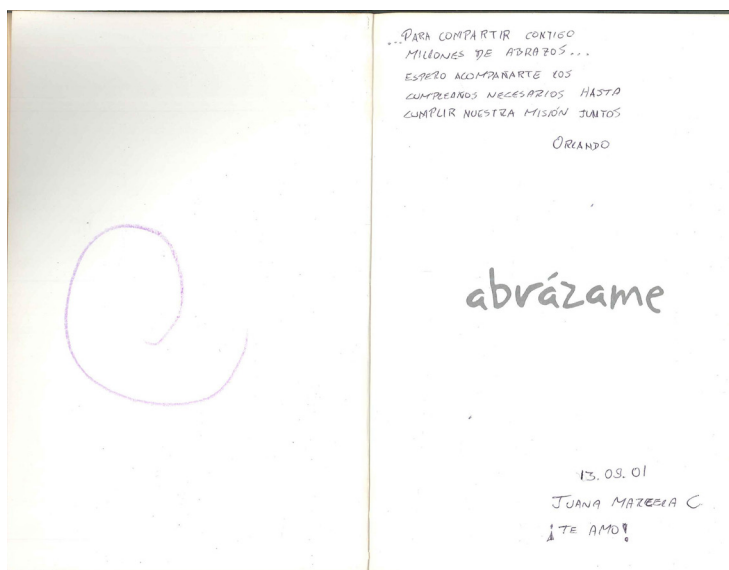 ...PARA COMPARTIR CONTIGO
MILLONES DE ABRAZOS...
ESPERO ACOMPAÑARTE LOS
CUMPLEAÑOS NECESARIOS HASTA
CUMPLIR NUESTRA MISIÓN JUNTOS
ORLANDO
abrázame
13.09.01
JUANA MARCELA C.
¡TE AMO!